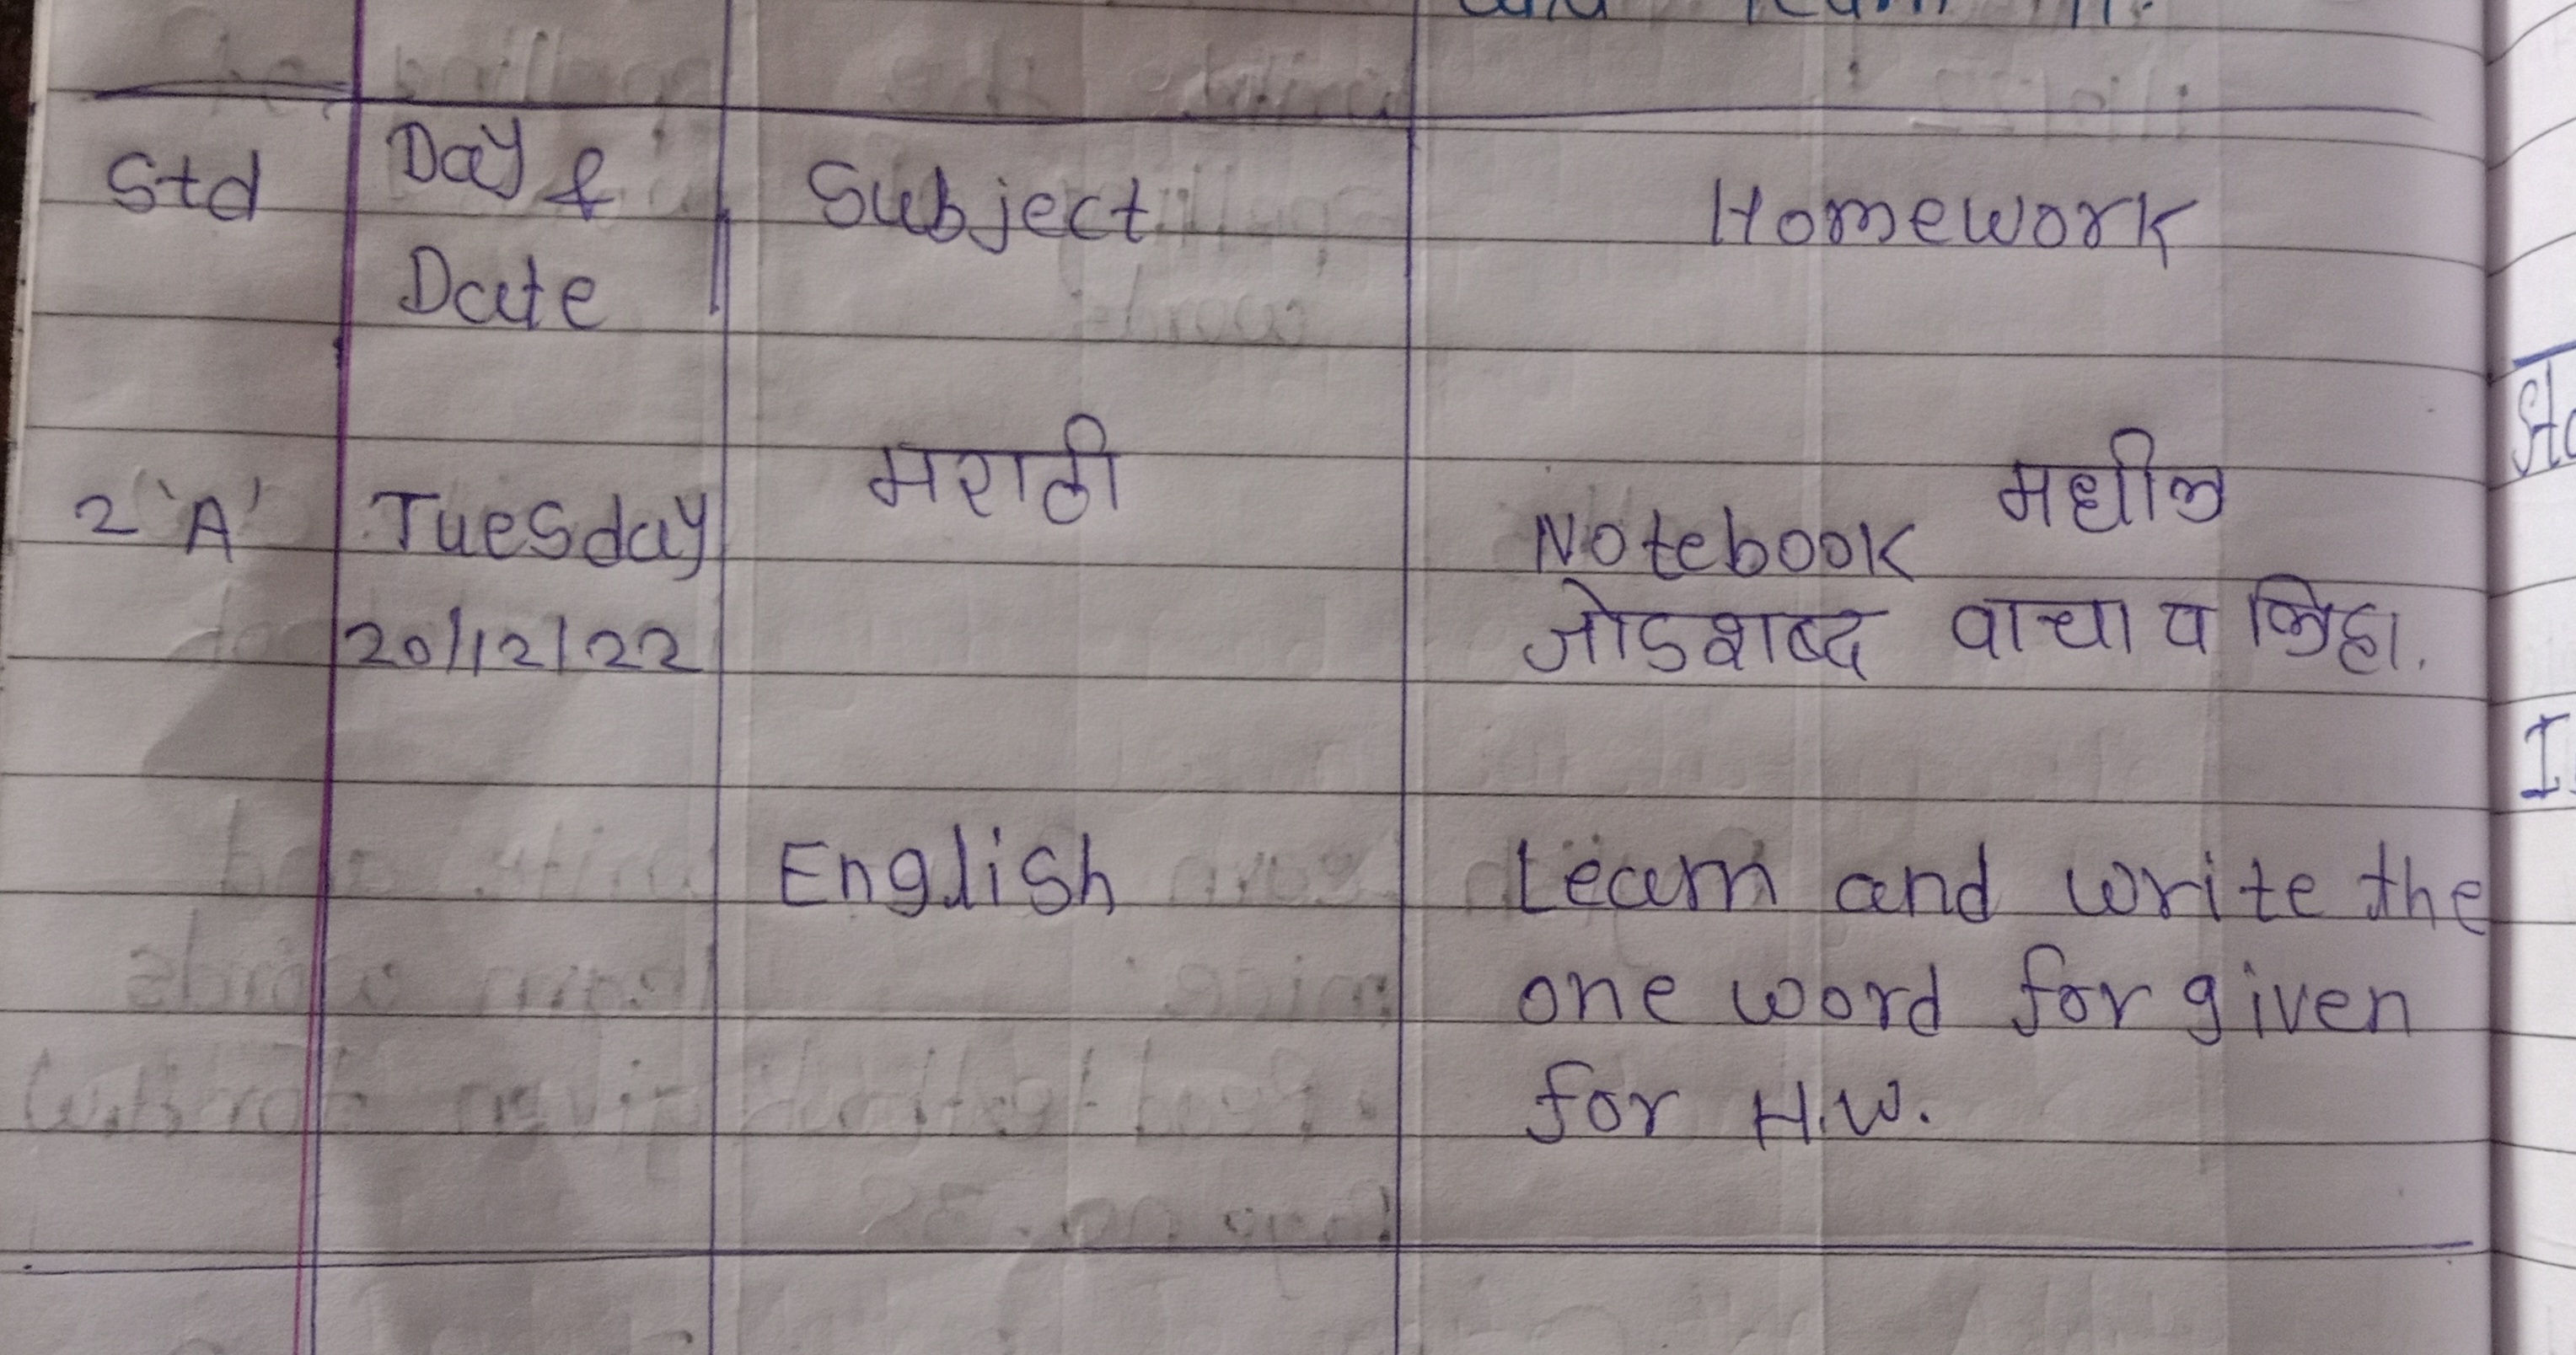 and learn it.
Std Day & Subject Homework
Date
2 'A' Tuesday मराठी Notebook मधील
20/12/22 जोडशब्द वाचा व लिहा.
English Learn and write the
one word for given
for H.W.